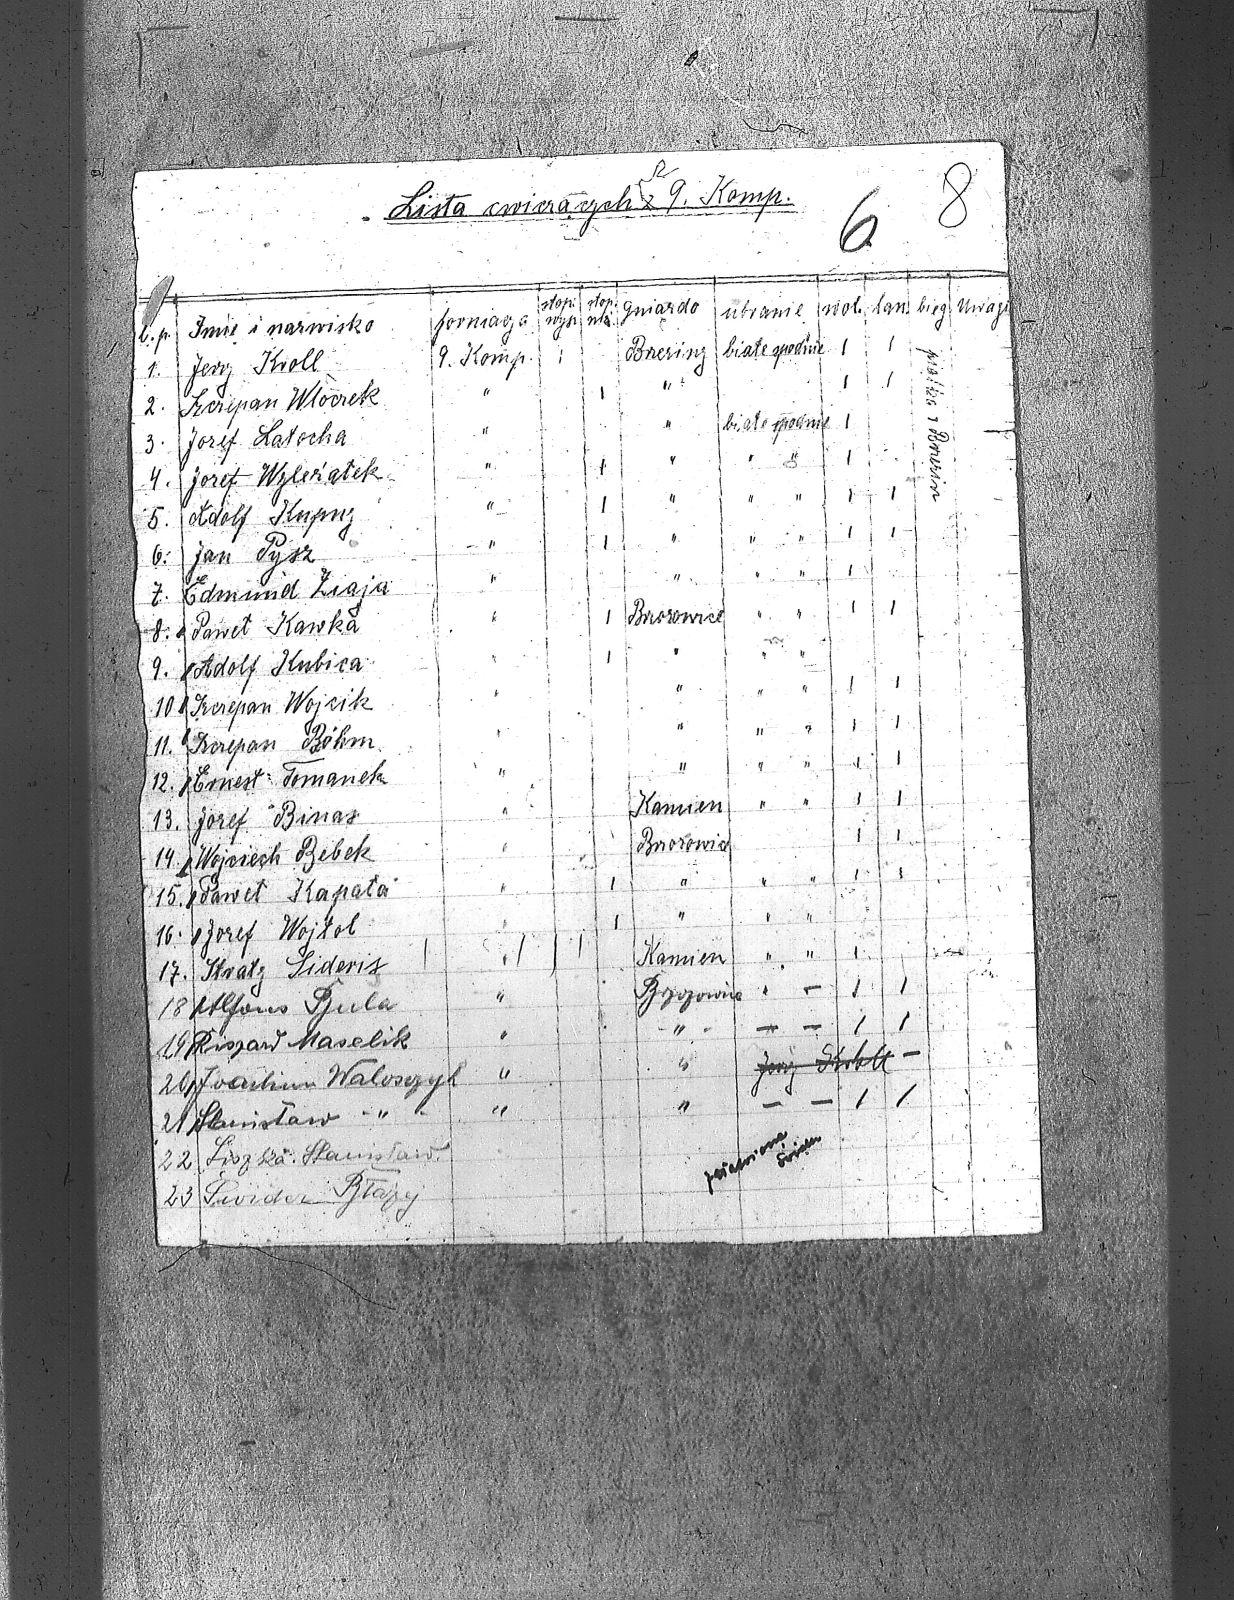 Lista cwiczących z 9. Komp.
6 8
l.p. Imie i nazwisko formacja stopi wyż stop. niż gniazdo ubranie wol. lan. bieg Uwagi
1. Jerzy Kroll 9. Komp. 1 Brzeziny białe spodnie 1 1
2. Szczepan Włoczek " 1 " 1 1
3. Jozef Latocha " " białe spodnie 1
4. Jozef Wzleziatek " 1 " " " 1
5. Adolf Kupny " 1 " " " 1 1
6. Jan Pysz " 1 " " " 1 1
7. Edmund Ziaja " " " " 1
8. Paweł Kawka " 1 Brzozowice " " 1 1
9. Adolf Kubica " 1 " " "
10 Szczepan Wojcik " " " " 1 1
11. Szczepan Böhm " " " " 1 1
12. Ernest Tomanek " " " " 1 1
13. Jozef Binas " Kamien " " 1 1
14. Wojciech Bebek " Brzozowice 1 1
15. Paweł Kapała " 1 " " " 1 1
16. Jozef Wojtol " 1 " " "
17. Sideris " 1 Kamien " " 1
18 Alfons Bula " Brzozowice " – 1 1
19 Riszard Maselik " " – – 1 1
20 Joachim Waloszczyk " " Jerzy –
21 Stanisław " " " – – 1 1
22 Liszka Stanisław
23 Swider Błażej